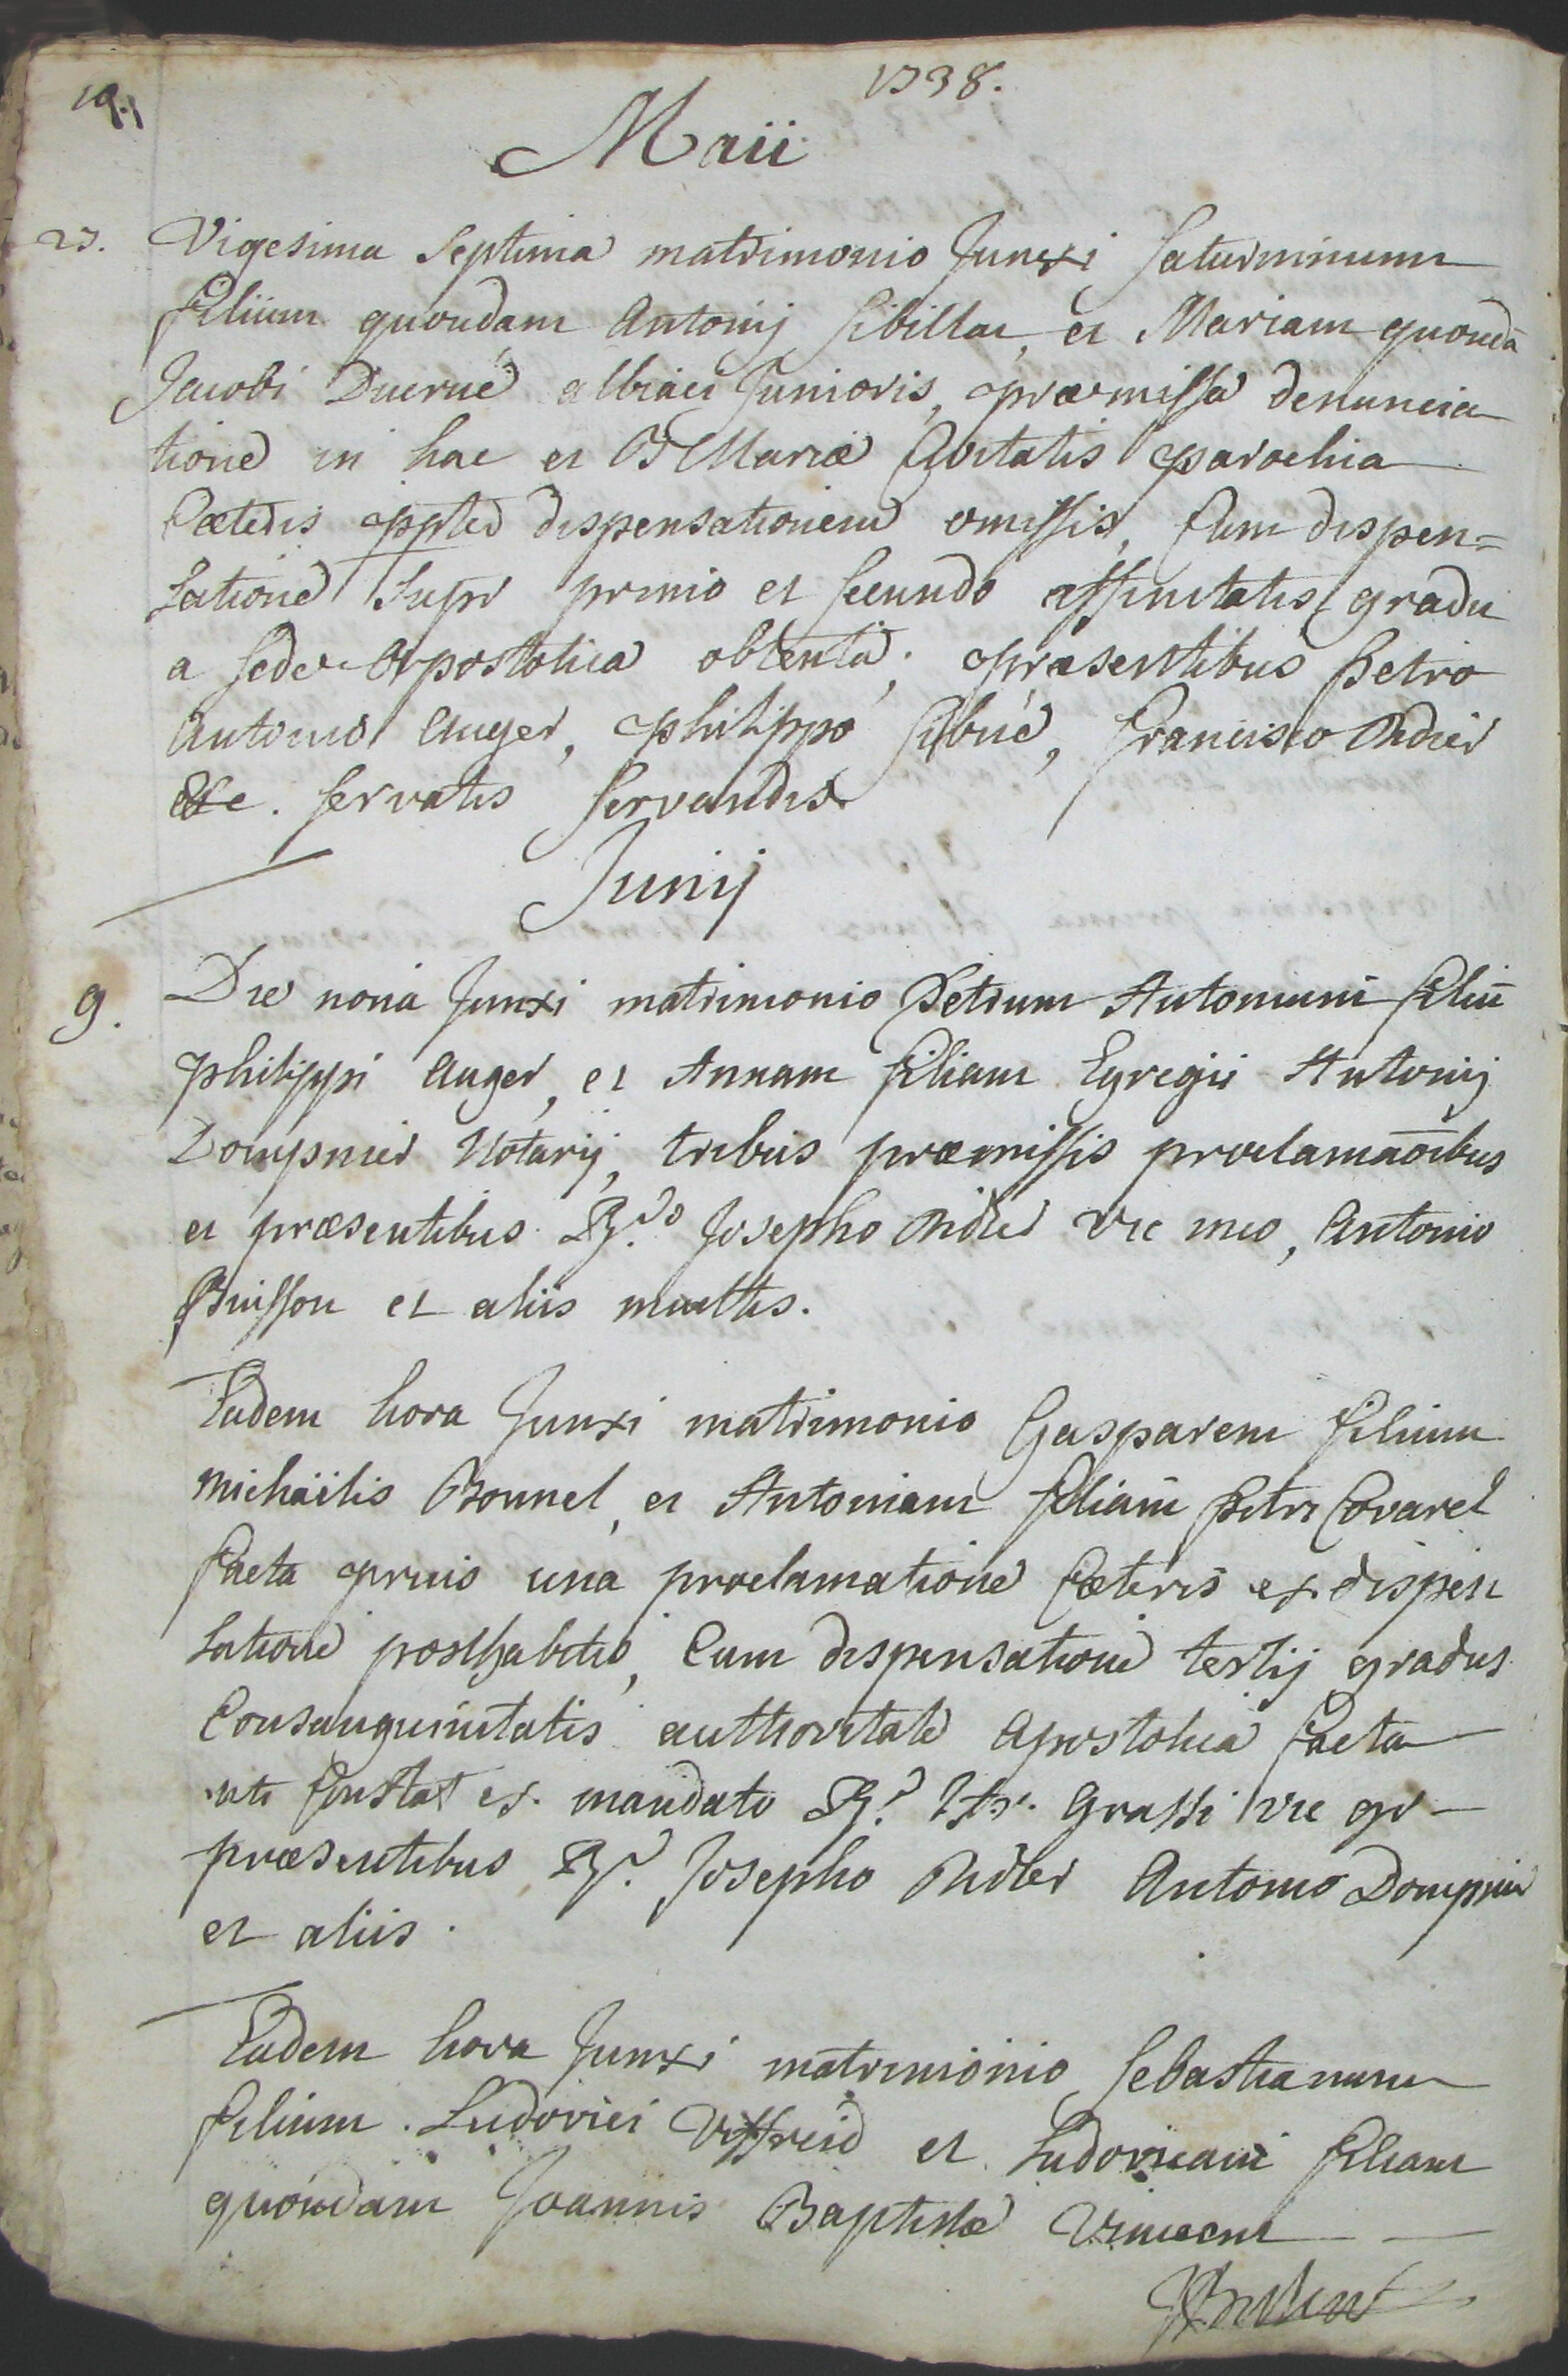 1738.
Maii
27. Vigesima Septima matrimonio Junxi Saturninum
filium quondam Antonij Sibillae, et Mariam quondā
Jacobi Ducruè albiaci Junioris, praemissa denuncia
tione in hac et B Mariae Civitatis parochia
Caeteris dispensationem omissis, Cum dispen=
satione Supr primo et secundo affinitatis gradu
a sede Apostolica obtenta, praesentibus Petro
Antonio Auger, philippo Sibué, francisco Didier
&c. servatis servandis
Junij
9. Die nona Junxi matrimonio Petrum Antonium filiū
philippi Auger, et Annam filiam Egregii Antonij
Dompnier Notarij, tribus praemissis proclamaōibus
et praesentibus Rdo Josepho Didier vic meo, Antonio
Buisson et aliis multis.
Eadem hora Junxi matrimonio Gasparem filium
Michaëlis Bonnel, et Antoniam filiam Petri Covarel
facta prius una proclamatione Caeteris ex dispen
satione posthabitis, Cum dispensatione tertij gradus
Consanguinitatis authoritate Apostolica facta
uti Constat ex mandato Rd Grassi vic gr
praesentibus Rd Josepho Didier Antonio Dompnier
et aliis.
Eadem hora Junxi matrimonio Sebastianum
filium Ludovici Viffreid et Ludovicam filiam
quondam Joannis Baptistae Vincent